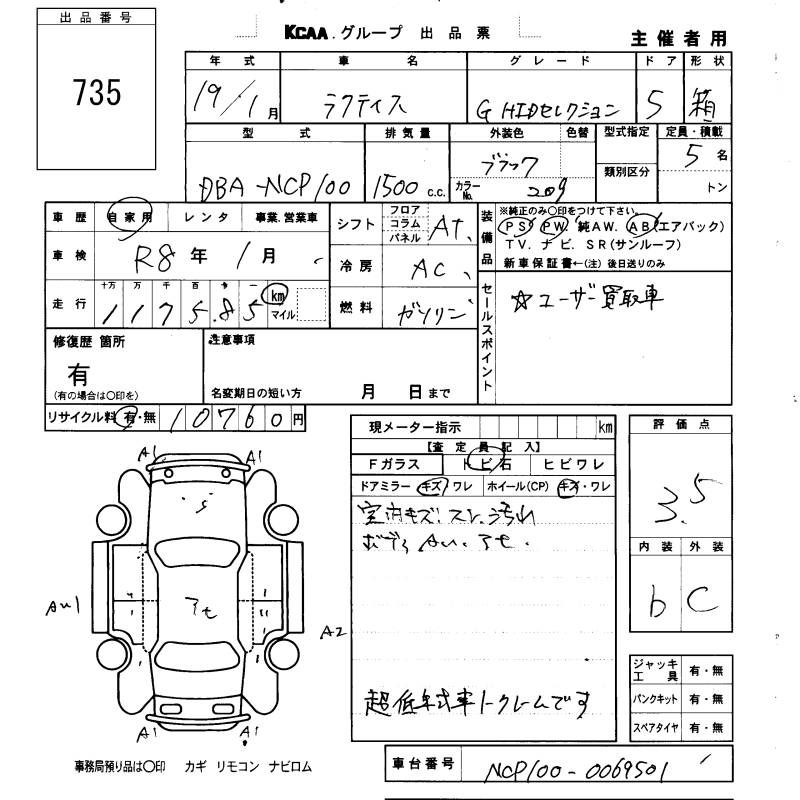 出品番号
735
KCAA.グループ 出品票
主催者用
年式 車名 グレード ドア 形状
19/1月 ラクティス G HIDセレクション 5 箱
型式 排気量 外装色 色替 型式指定 定員・積載
類別区分
DBA-NCP100 1500 C.C. ブラック カラーNo. 209 5名
トン
車歴 自家用 レンタ 事業.営業車
車検 R8年1月
走行 十万 万 千 百 十 一
117585 km マイル
シフト フロア コラム パネル At
冷房 AC
燃料 ガソリン
装備品 ※純正のみ〇印をつけて下さい。
PS PW 純AW. AB(エアバック)
TV. ナビ. SR(サンルーフ)
新車保証書←(注)後日送りのみ
セールスポイント
☆ユーザー買取車
修復歴 箇所
有
(有の場合は〇印を)
注意事項
名変期日の短い方 月 日まで
リサイクル料 有・無 10760円
現メーター指示 km
【査定員記入】
Fガラス トビ石 ヒビワレ
ドアミラー キズ/ワレ ホイール(CP) キズ・ワレ
室内キズ.スレ.汚れ
ボデー AU.アセ.
超低年式車ノークレームです
評価点
3.5
内装 外装
b C
A1 A1
AU1
アセ
A2
A1 A1
ジャッキ工具 有・無
パンクキット 有・無
スペアタイヤ 有・無
事務局預り品は〇印 カギ リモコン ナビロム
車台番号 NCP100-0069501